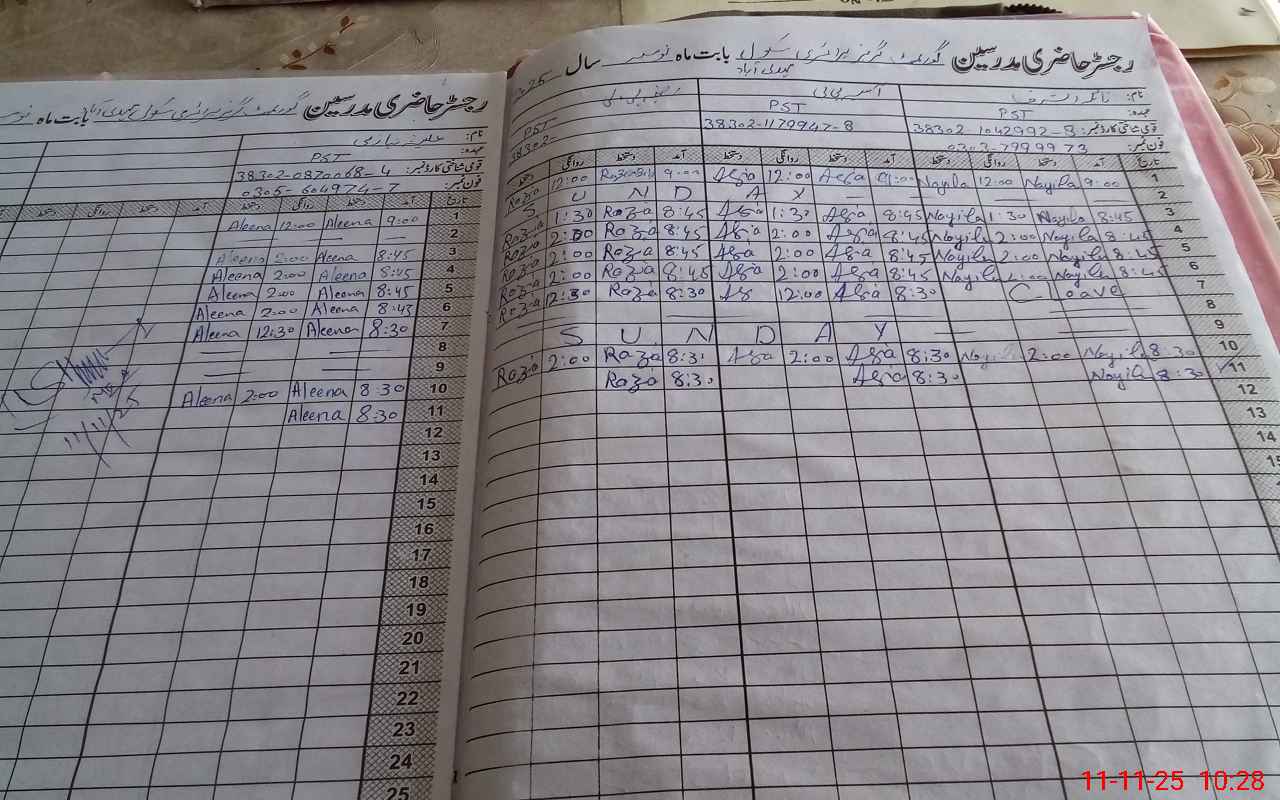 رجسٹر حاضری مدرسین گورنمنٹ گرلز پرائمری سکول بابت ماہ نومبر سال 25
نام:
عہدہ: PST PST PST
قومی شناختی کارڈ نمبر: 38302-1042992-8 38302-1179947-8 38302-
فون نمبر: 0303-7999973
تاریخ آمد دستخط روانگی دستخط آمد دستخط روانگی دستخط آمد دستخط روانگی دستخط
1 9:00 Nayila 12:00 Nayila 9:00 Asia 12:00 Asia 9:00 12:00 Razia
2 S U N D A Y
3 8:45 Nayila 1:30 Nayila 8:45 Asia 1:30 Asia 8:45 Razia 1:30 Razia
4 8:45 Nayila 2:00 Nayila 8:45 Asia 2:00 Asia 8:45 Razia 2:00 Razia
5 8:45 Nayila 2:00 Nayila 8:45 Asia 2:00 Asia 8:45 Razia 2:00 Razia
6 8:45 Nayila 2:00 Nayila 8:45 Asia 2:00 Asia 8:45 Razia 2:00 Razia
7 C-Leave 8:30 Asia 12:00 As 8:30 Razia 12:30 Razia
8
9 S U N D A Y
10 8:30 Nayila 2:00 Nayila 8:30 Asia 2:00 Asia 8:30 Razia 2:00 Razia
11 8:30 Nayila 8:30 Asia 8:30 Razia
12
13
14
15
رجسٹر حاضری مدرسین گورنمنٹ گرلز پرائمری سکول بابت ماہ
نام:
عہدہ: PST
قومی شناختی کارڈ نمبر: 38302-0870068-4
فون نمبر: 0305-604974-7
تاریخ آمد دستخط روانگی دستخط آمد دستخط روانگی دستخط
1 9:00 Aleena 12:00 Aleena
2
3 8:45 Aleena 2:00 Aleena
4 8:45 Aleena 2:00 Aleena
5 8:45 Aleena 2:00 Aleena
6 8:43 Aleena 2:00 Aleena
7 8:30 Aleena 12:30 Aleena
8
9
10 8:30 Aleena 2:00 Aleena
11 8:30 Aleena
11/11/25
12
13
14
15
16
17
18
19
20
21
22
23
24
25
11-11-25 10.28